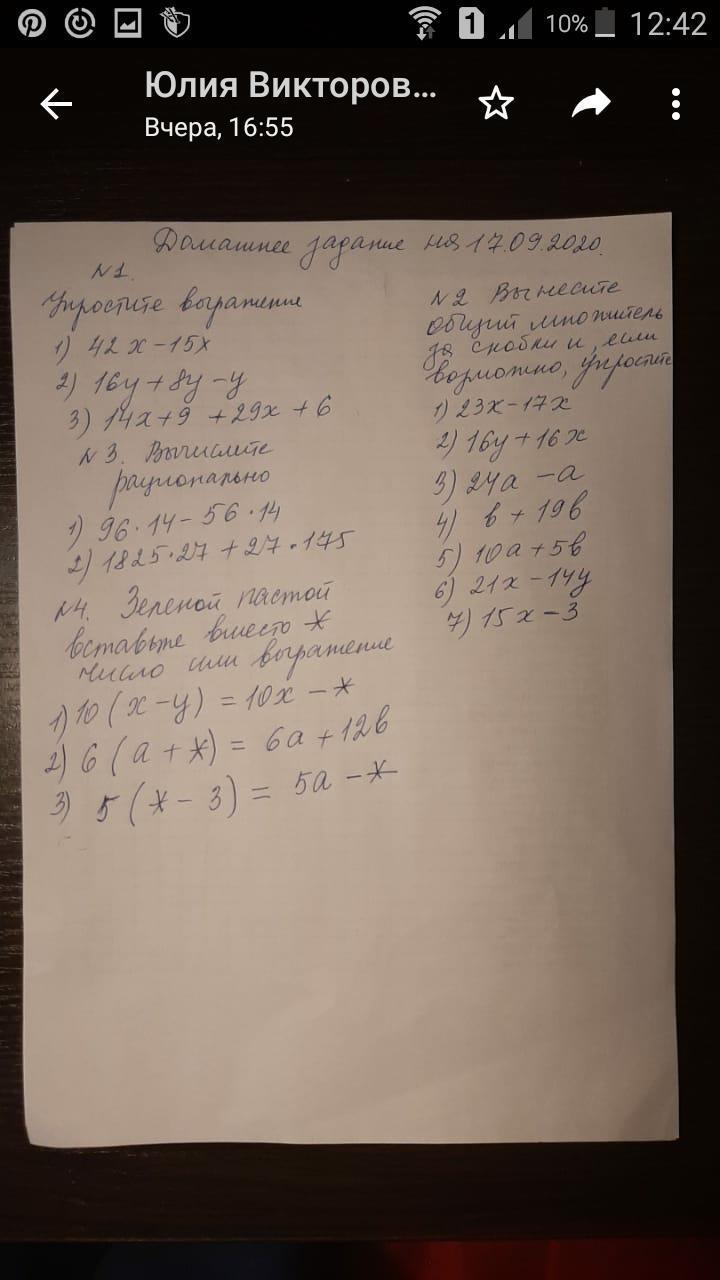 10% 12:42
Юлия Викторов...
Вчера, 16:55
Домашнее задание на 17.09.2020.
N1.
Упростите выражение
1) 42x-15x
2) 16y+8y-y
3) 14x+9+29x+6
N3. Вычислите
рационально
1) 96·14-56·14
2) 1825·27+27·175
N4. Зеленой пастой
вставьте вместо *
число или выражение
1) 10(x-y)=10x-*
2) 6(a+*)=6a+12b
3) 5(*-3)=5a-*
N2 Вынесите
общий множитель
за скобки и, если
возможно, упростите
1) 23x-17x
2) 16y+16x
3) 24a-a
4) b+19b
5) 10a+5b
6) 21x-14y
7) 15x-3